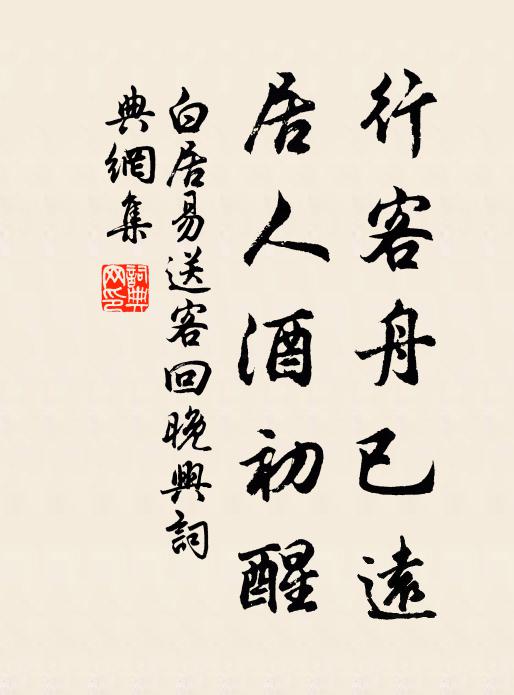 行客舟已遠
居人酒初醒
白居易送客回晚興詞
典網集
詞典网印